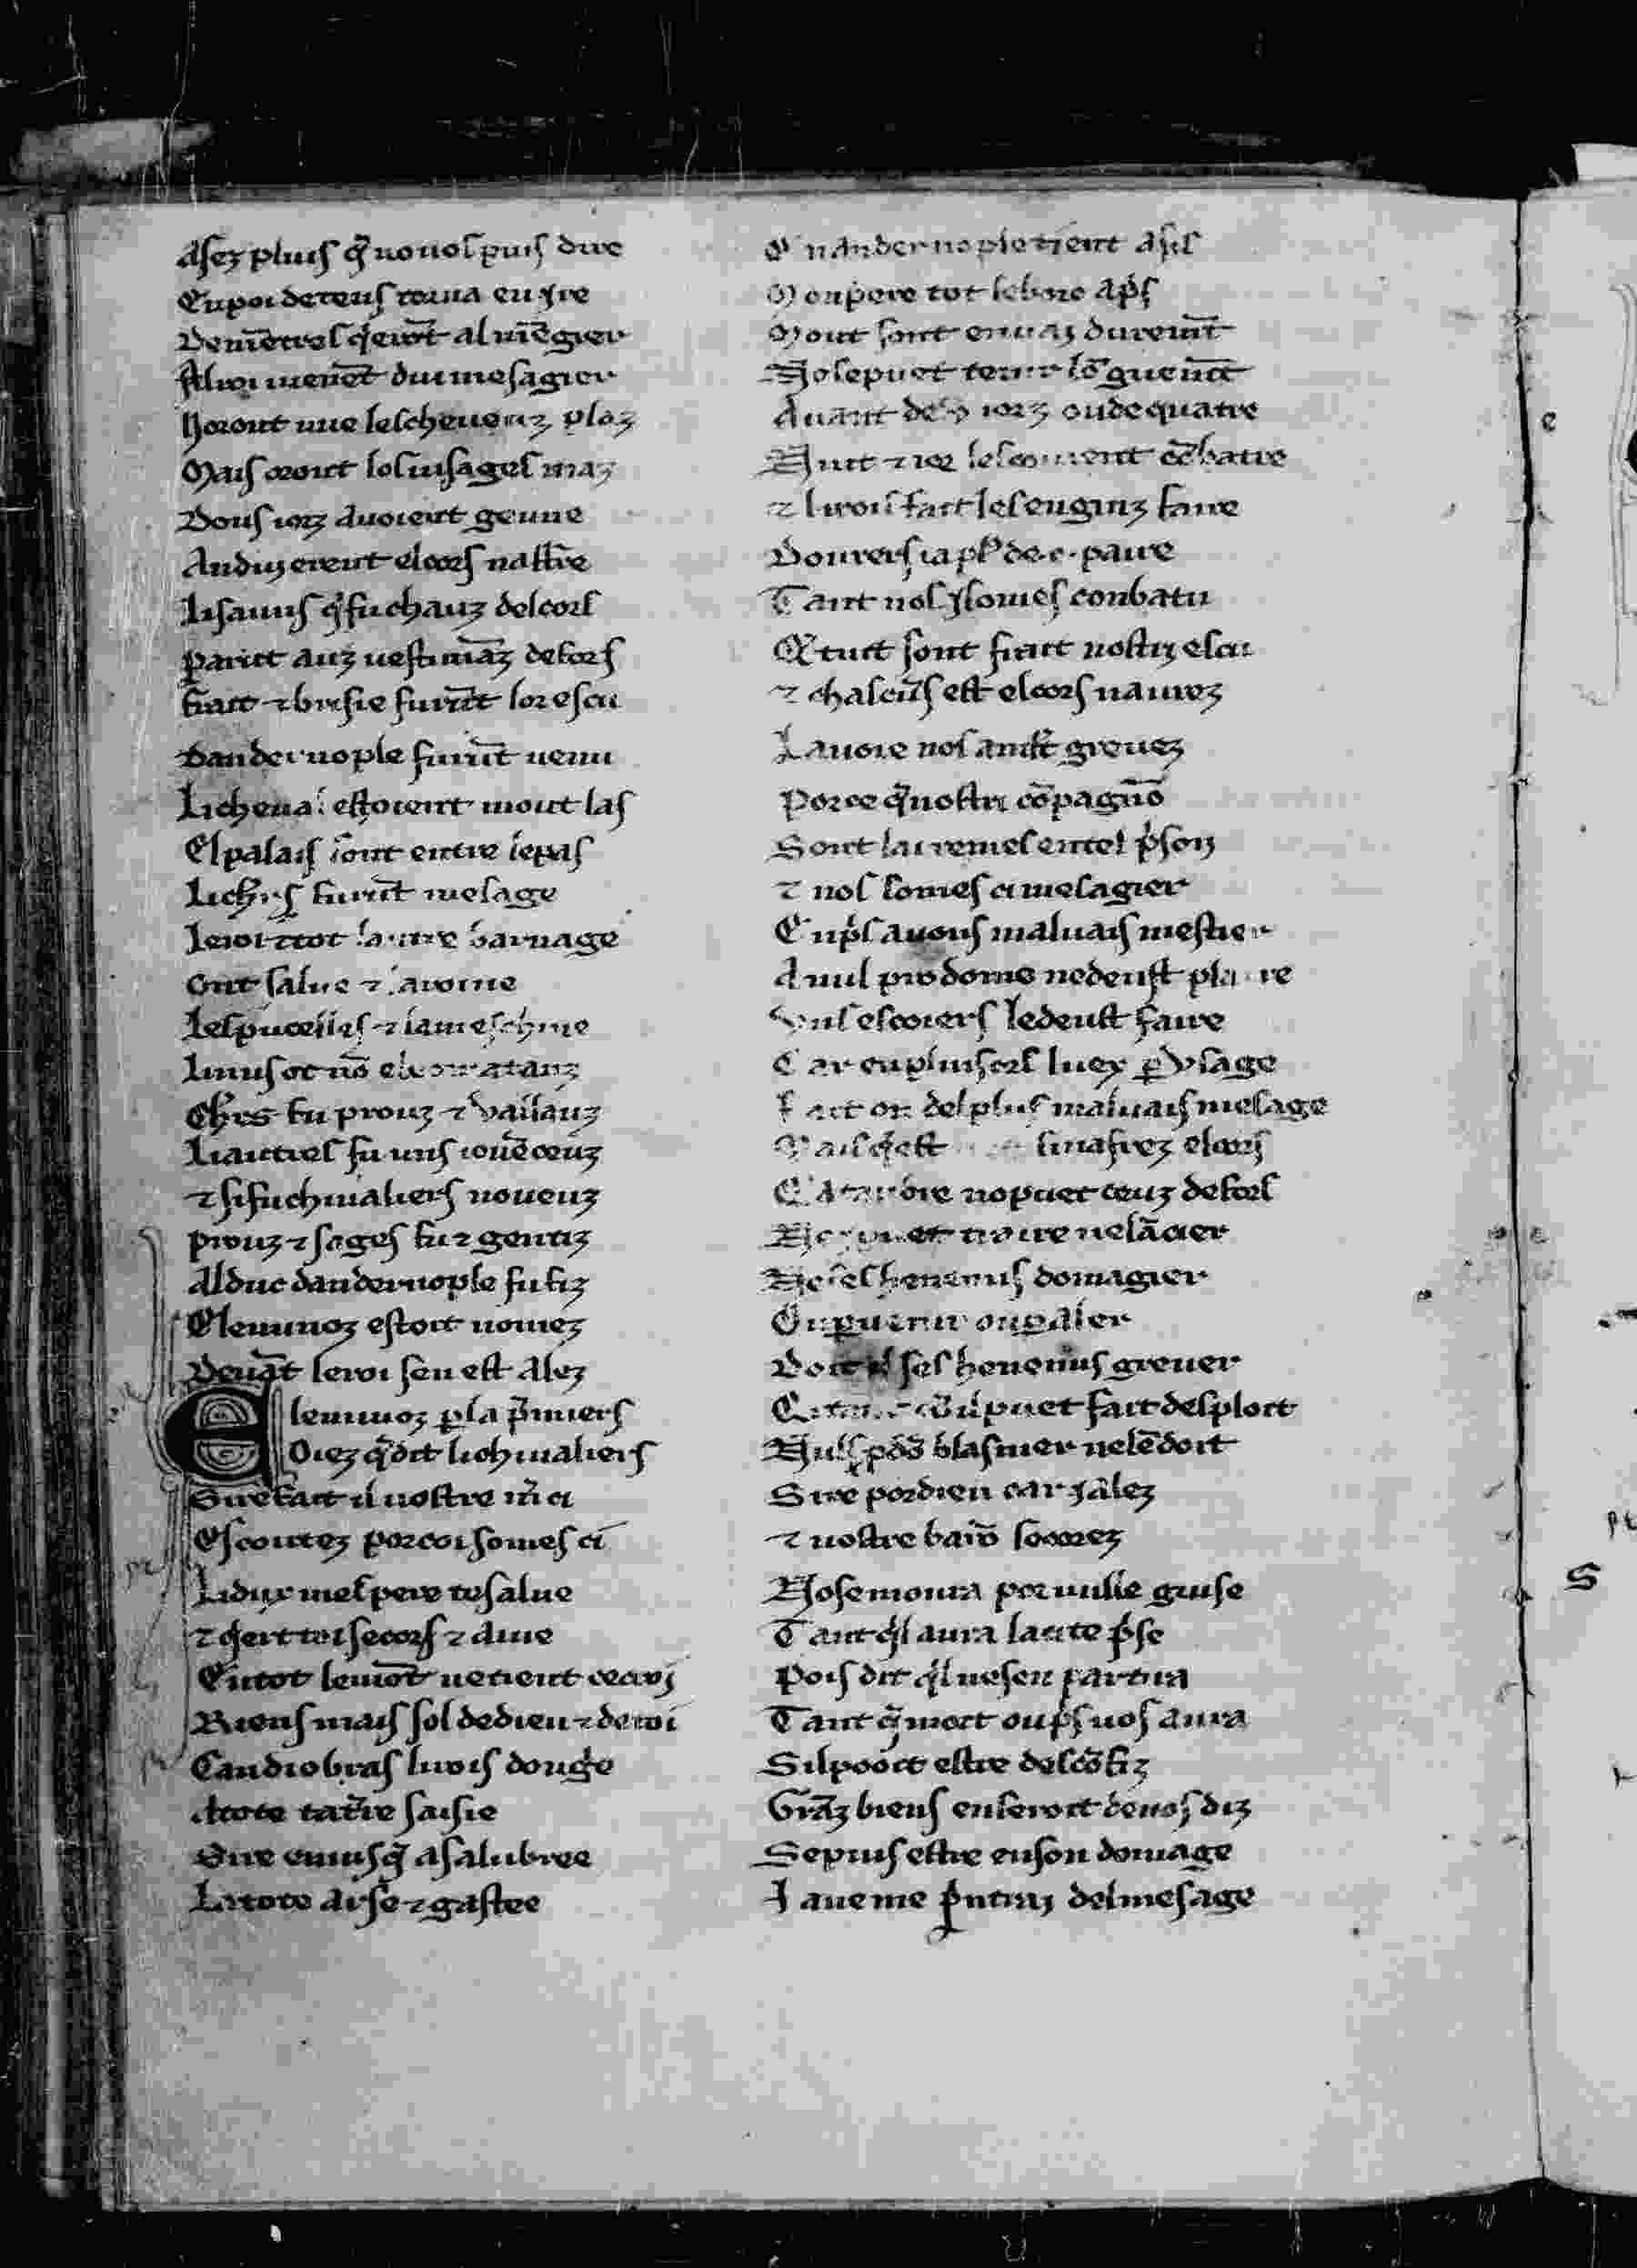 Asez pluis q̃ no uos puis dire
En poi de tens torna en ire
Demẽtres q̃ erõt al mẽgier
Al roi uienẽt dui mesagier
Noront mie les cheueuz plaz
Mais orent los uisages maz
Dous iorz auoient geune
Andui erent el cors naffre
Li sanns q̃ fu chauz del cors
Parut auz uestimãz defors
Frait ⁊ brisie furẽt lor escu
Dandernople furẽt uenu
Li cheual estoient mout las
El palais sont entre le pas
Li chrs furẽt mesage
Le roi ⁊ tot lautre barnage
Ont salue ⁊ la roine
Les pucelles ⁊ la meschine
Li uns ot nõ
Chrs fu prouz ⁊ vaillanz
Li autres fu uns iouẽceuz
⁊ si fu chiualiers noueuz
Prouz ⁊ sages fu ⁊ gentiz
Al duc dandernople fu fiz
Eleminoz estoit nomez
Deuãt le roi sen est alez
Eleminoz pla p̃miers
Oiez q̃ dit li chiualiers
Sire fait il uostre m̃ci
Escoutez por coi somes ci
Li dux mes pere te salue
⁊ q̃ert toi secors ⁊ aiue
En tot le mõt ne tient ce croi
Riens mais sol de dieu ⁊ de toi
Candiobras li rois dongͥe
A tote ta tr̃e saisie
Dire enuisq̃ a salubree
La tote arse ⁊ gastee
Quandernople tient asis
Mon pere tot lebore ap̃s
Mout sont enuaz duremẽt
No se puet tenir lõguemẽt
Auant de iorz ou de quatre
Nuit ⁊ ior les couuient cõbatre
⁊ li rois fait les enginz faire
Douuers ia pl̃ de .c. paire
Tant nos i somes conbatu
Q tuit sont frait nostr escu
⁊ chascũs est el cors naurez
La uoie nos a mlt greuez
Por ce q̃ nostri cõpagnõ
Sont lai remes en tel p̃son
⁊ nos somes ci mesagier
Enp̃s auons maluais mestier
A nul prodome ne deust plaire
Vns escoiers le deust faire
Car en pluisors luex p vsage
Fait on del plus maluais mesage
Mais q̃ est si nafrez el cors
Q a tandre no puet ceuz defors
Ne puet traire ne lãcier
Ne ses henemis domagier
En puenir ou paler
Doit il ses henemis greuer
puet fait desploit
Nuls pdõ blasmer ne lẽ doit
Sire por dieu car i alez
⁊ uostre barõ socorez
No se moura por nulle guise
Tant q̃l aura la cite p̃se
Pois dit q̃l ne sen partira
Tant q̃ mort ou p̃s uos aura
Sil pooit estre descõfiz
Grãz biens en seroit de uos diz
Se puis estre en son domage
Ia ue me p̃ntraz del mesage